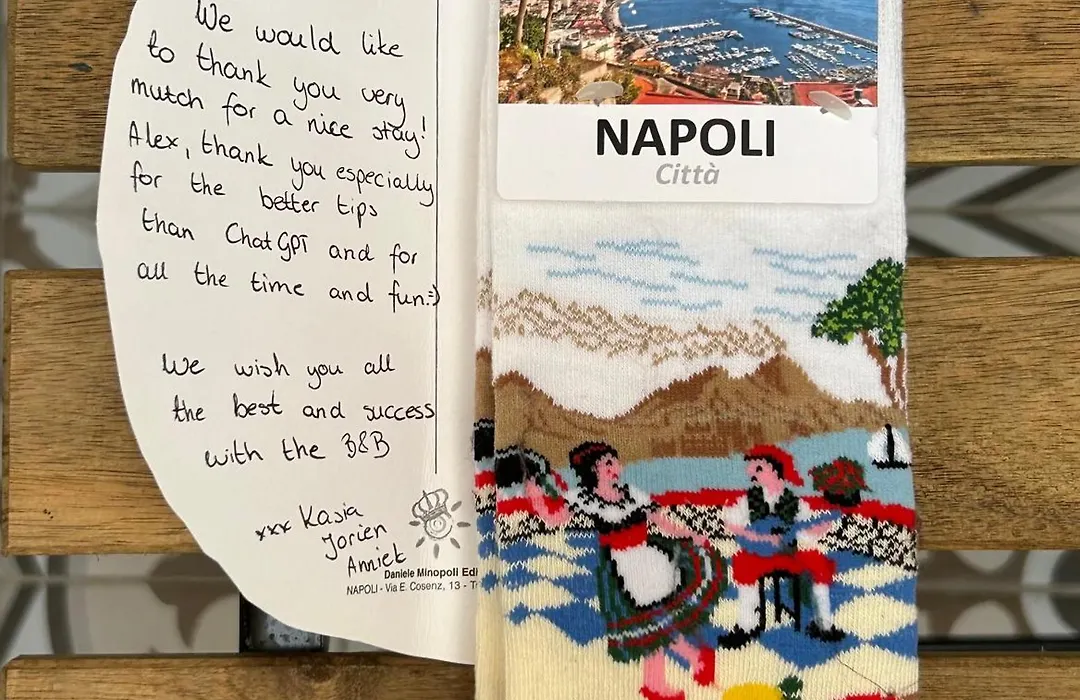 We would like
to thank you very
mutch for a nice stay!
Alex, thank you especially
for the better tips
than ChatGPT and for
all the time and fun:)
We wish you all
the best and success
with the B&B
xxx Kasia
Jorien
Anniek
Daniele Minopoli Edi
NAPOLI - Via E. Cosenz, 13 - T
NAPOLI
Città